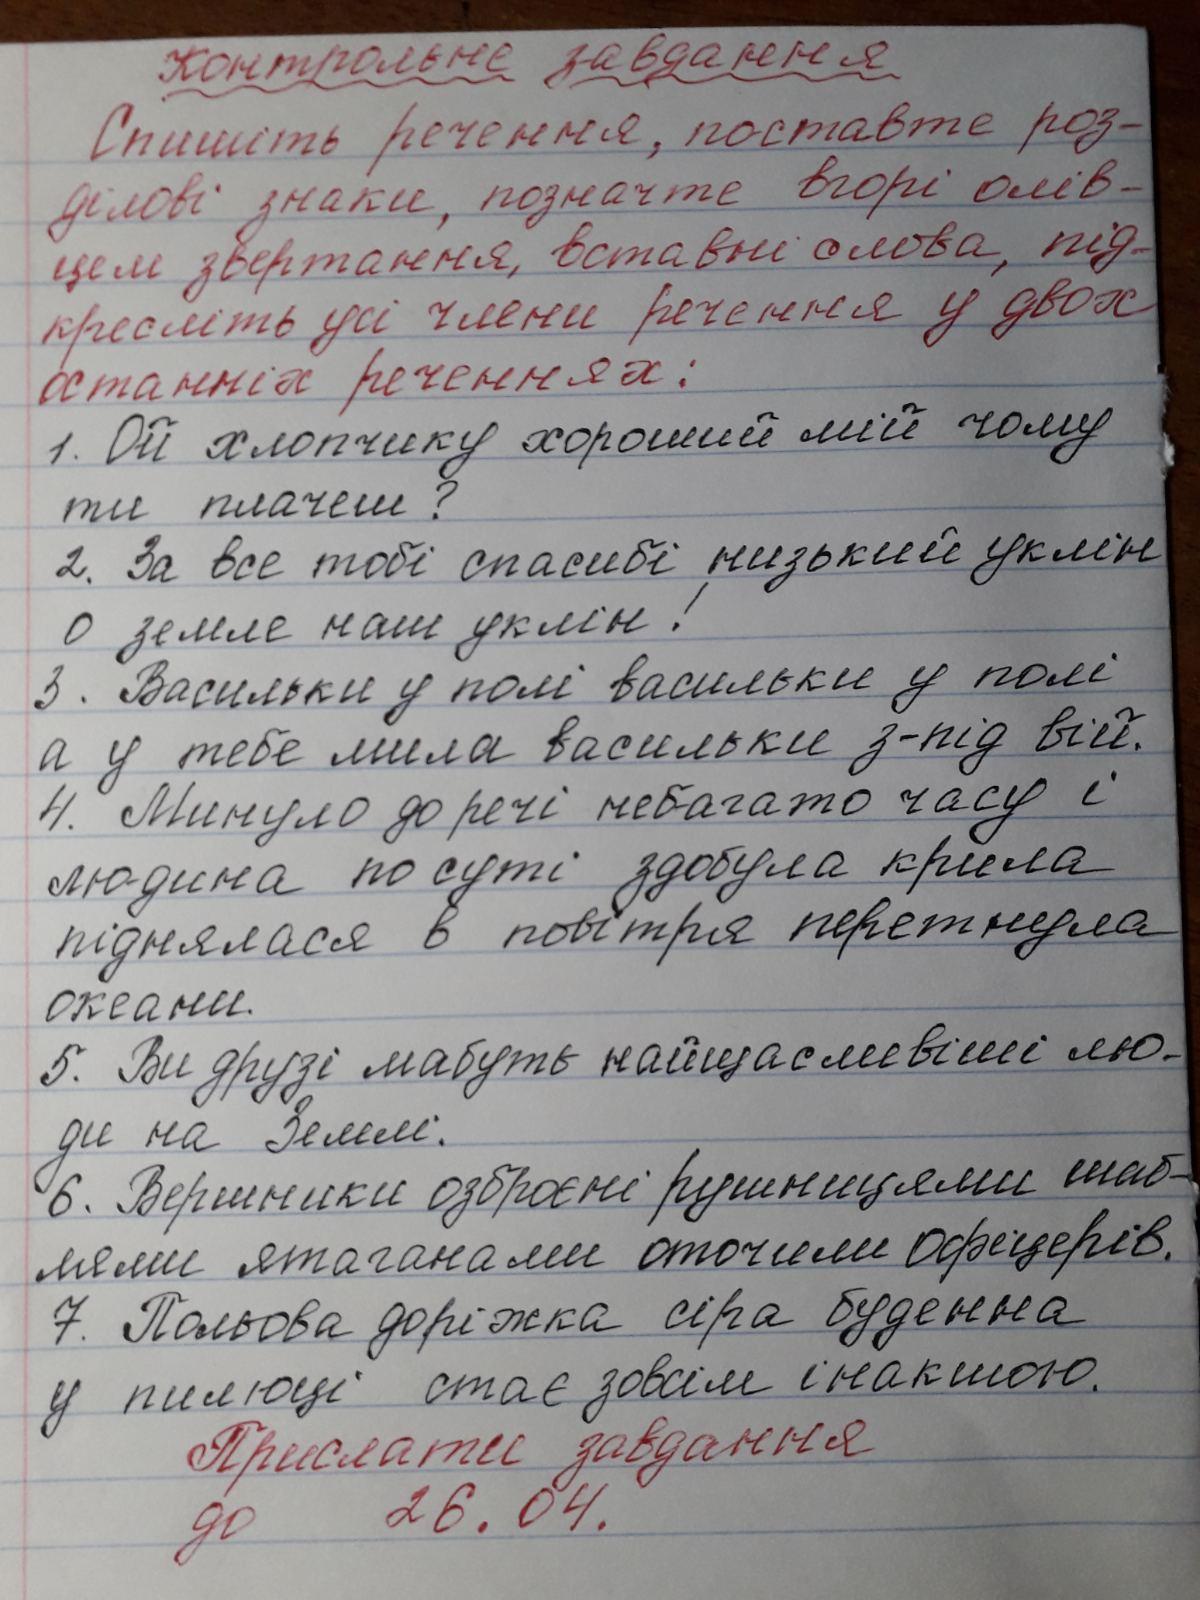 Контрольне завдання
Спишіть речення, поставте роз-
ділові знаки, позначте вгорі олів-
цем звертання, вставні слова, під-
кресліть усі члени речення у двох
останніх реченнях:
1. Ой хлопчику хороший мій чому
ти плачеш?
2. За все тобі спасибі низький уклін
О земле наш уклін!
3. Васильки у полі васильки у полі
а у тебе мила васильки з-під вій.
4. Минуло до речі небагато часу і
людина по суті здобула крила
піднялася в повітря перетнула
океани.
5. Ви друзі мабуть найщасливіші лю-
ди на Землі.
6. Вершники озброєні рушницями шаб-
лями ятаганами оточили офіцерів.
7. Польова доріжка сіра буденна
у пилюці стає зовсім інакшою.
Прислати завдання
до 26.04.